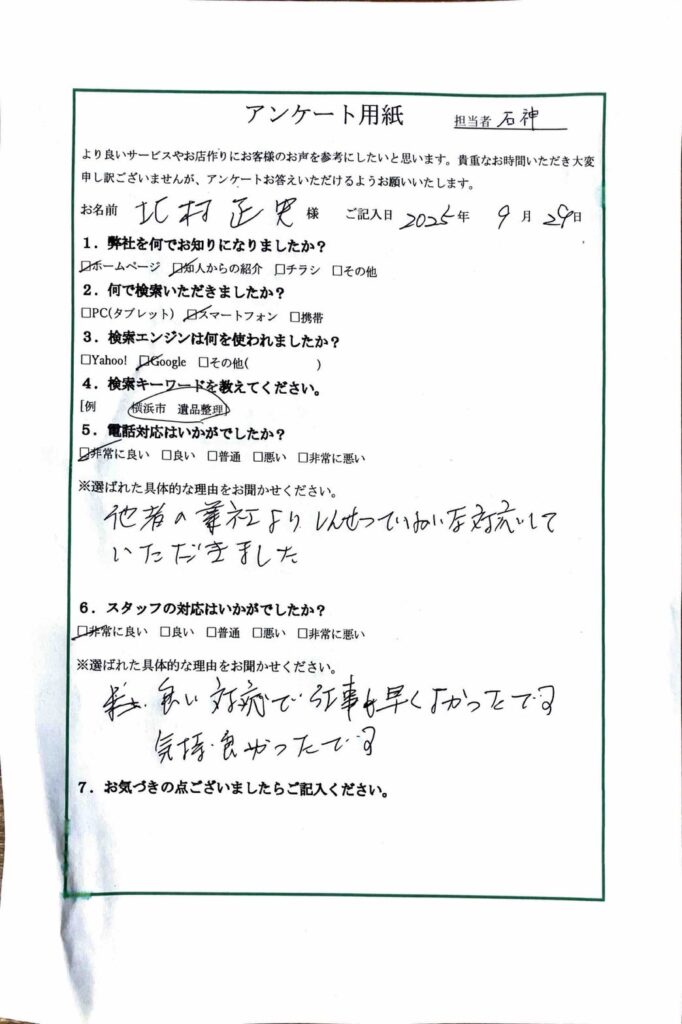 アンケート用紙
担当者 石神
より良いサービスやお店作りにお客様のお声を参考にしたいと思います。貴重なお時間いただき大変
申し訳ございませんが、アンケートお答えいただけるようお願いいたします。
お名前 北村正 様 ご記入日 2025年 9月 29日
1．弊社を何でお知りになりましたか？
□ホームページ □知人からの紹介 □チラシ □その他
2．何で検索いただきましたか？
□PC(タブレット) □スマートフォン □携帯
3．検索エンジンは何を使われましたか？
□Yahoo! □Google □その他( )
4．検索キーワードを教えてください。
[例 横浜市 遺品整理]
5．電話対応はいかがでしたか？
□非常に良い □良い □普通 □悪い □非常に悪い
※選ばれた具体的な理由をお聞かせください。
他者の業社よりしんせつていねいな対応して
いただきました
6．スタッフの対応はいかがでしたか？
□非常に良い □良い □普通 □悪い □非常に悪い
※選ばれた具体的な理由をお聞かせください。
良い対応で仕事も早くよかったです
気持良かったです
7．お気づきの点ございましたらご記入ください。